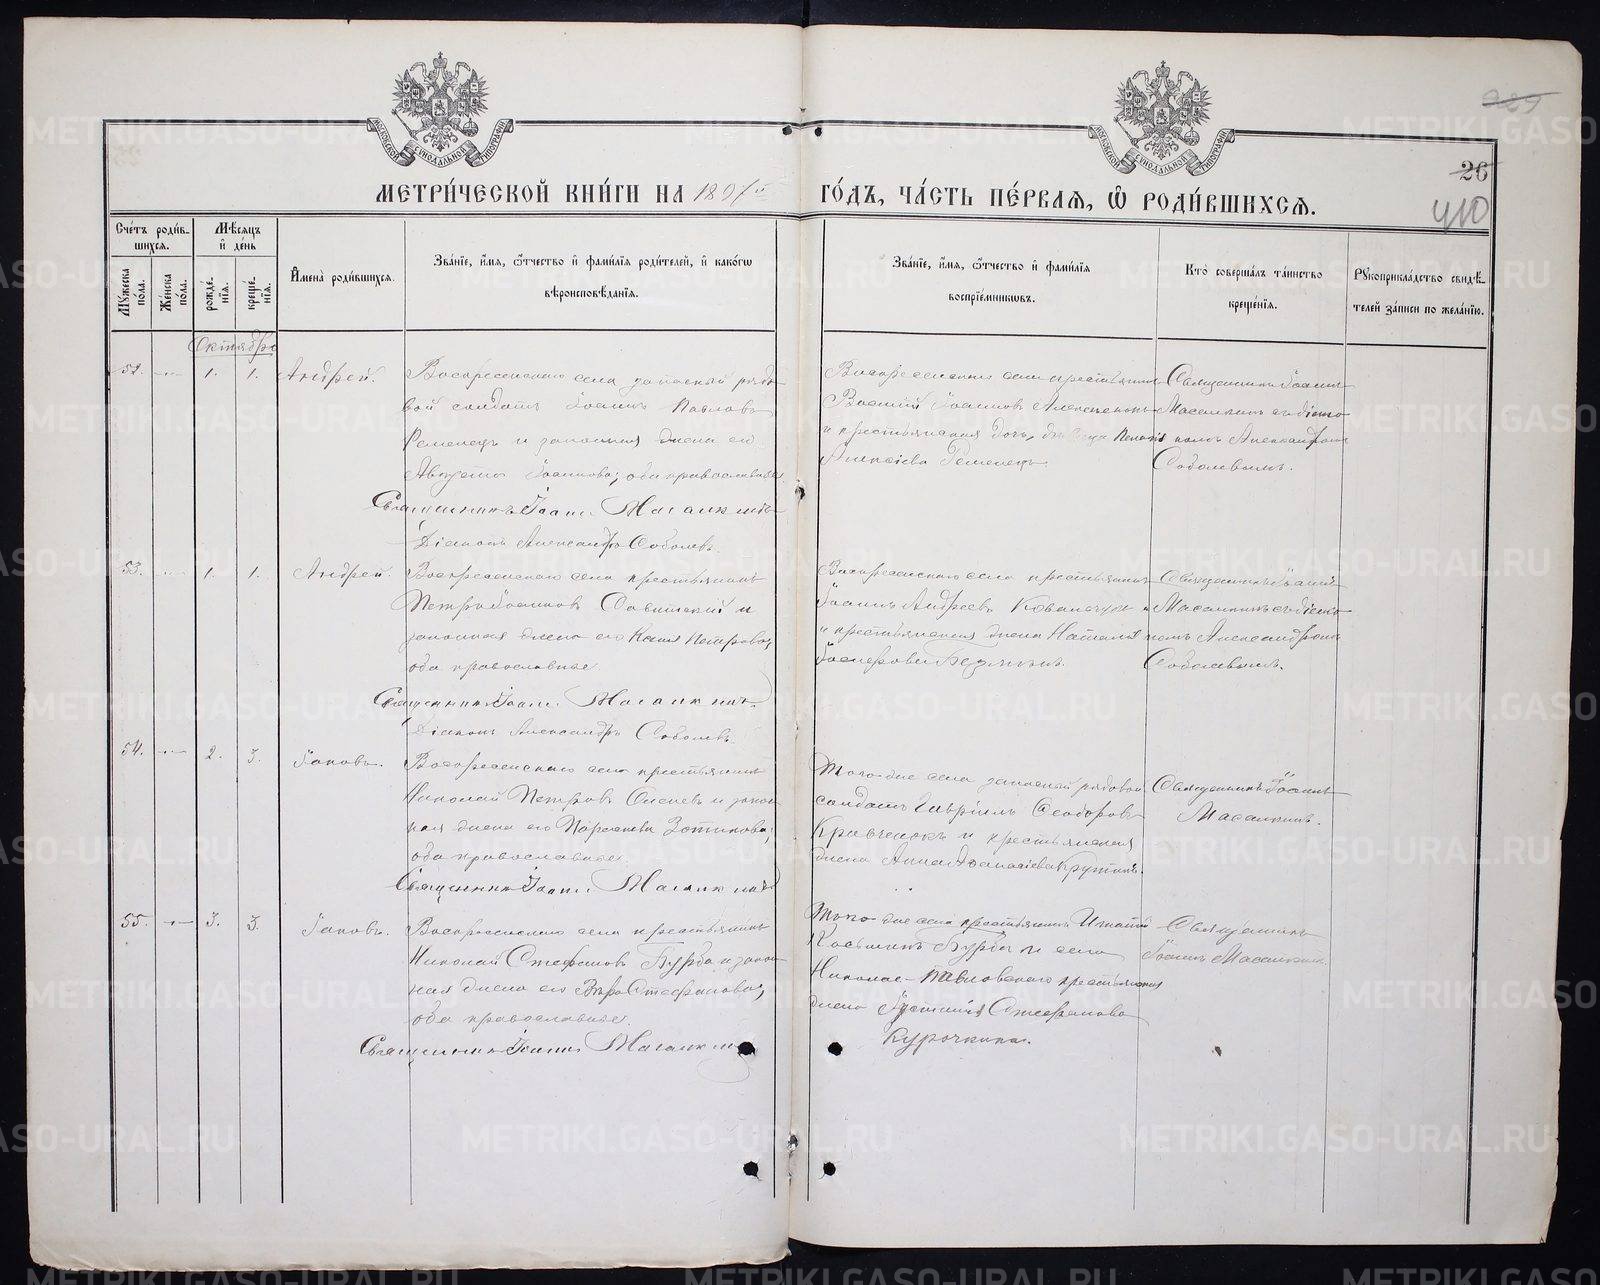 МЕТРИ́ЧЕСКОЙ КНИ́ГИ НА 1897й ГО́ДЪ, ЧА́СТЬ ПЕ́РВАѦ, Ѡ҆ РОДИ́ВШИХСѦ.
26
410
Сче́тъ роди́в-
шихсѧ.
Мꙋ́жеска по́ла.
Же́нска по́ла.
Мѣ́сѧцъ
и҆ де́нь
рожде́-
нїѧ.
креще́-
нїѧ.
И҆мена̀ роди́вшихсѧ.
Зва́нїе, и҆́мѧ, ѻ҆́тчество и҆ фами́лїѧ роди́телей, и҆ како́гѡ
вѣроисповѣ́данїѧ.
Зва́нїе, и҆́мѧ, ѻ҆́тчество и҆ фами́лїѧ
воспрїе́мникѡвъ.
Кто̀ соверша́лъ та́инство
креще́нїѧ.
Рꙋкоприкла́дство свидѣ́-
телей за́писи по жела́нїю.
Октябрь
52. — 1. 1. Андрей.
Воскресенскаго села запасный рядо-
вой солдатъ Іоаннъ Павловъ
Ременецъ и законная жена его
Іоаннова, оба православные
Священникъ Іоаннъ Масалкинъ
Діаконъ Александръ Соболевъ.
Воскресенскаго села крестьянинъ
Василій Іоанновъ
и крестьянская дочь, девица
Алексіева Ременецъ.
Священникъ Іоаннъ
Масалкинъ съ діако-
номъ Александромъ
Соболевымъ.
53. — 1. 1. Андрей.
Воскресенскаго села крестьянинъ
Петръ Іоанновъ Савицкій и
законная жена его Петрова,
оба православные.
Священникъ Іоаннъ Масалкинъ.
Діаконъ Александръ Соболевъ.
Воскресенскаго села крестьянинъ
Іоаннъ Андреевъ Ковальчукъ
и крестьянская жена Наталія
Священникъ Іоаннъ
Масалкинъ съ діако-
номъ Александромъ
Соболевымъ.
54. — 2. 3. Іаковъ.
Воскресенскаго села крестьянинъ
Николай Петровъ и закон-
ная жена его Зотикова,
оба православные.
Священникъ Іоаннъ Масалкинъ
Того-же села запасный рядовой
солдатъ Гавріилъ Ѳеодоровъ
Кравченокъ и крестьянская
жена Анна Аѳанасіева
Священникъ Іоаннъ
Масалкинъ.
55. — 3. 3. Іаковъ.
Воскресенскаго села крестьянинъ
Николай Стефановъ Бурба и закон-
ная жена его Вѣра Стефанова,
оба православные.
Священникъ Іоаннъ Масалкинъ
Того-же села крестьянинъ Игнатій
Косьминъ Бурба и села
Николае-Павловскаго крестьянская
жена Іустинія Стефанова
Курочкина.
Священникъ
Іоаннъ Масалкинъ.
METRIKI.GASO-URAL.RU